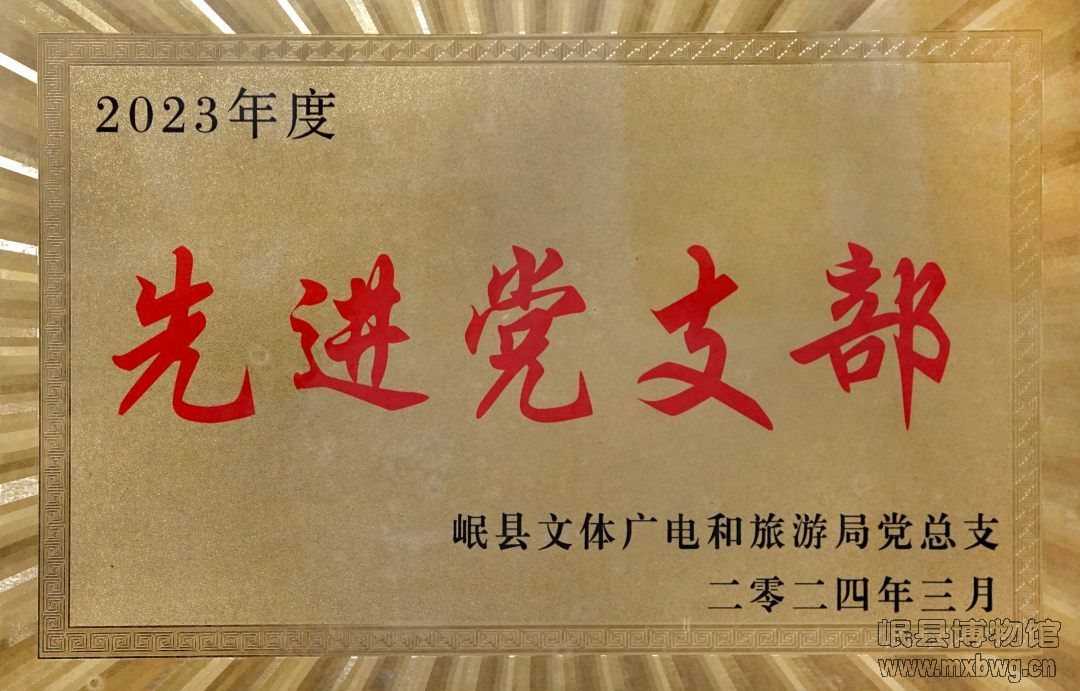 2023年度
先进党支部
岷县文体广电和旅游局党总支
二零二四年三月
岷县博物馆
www.mxbwg.cn